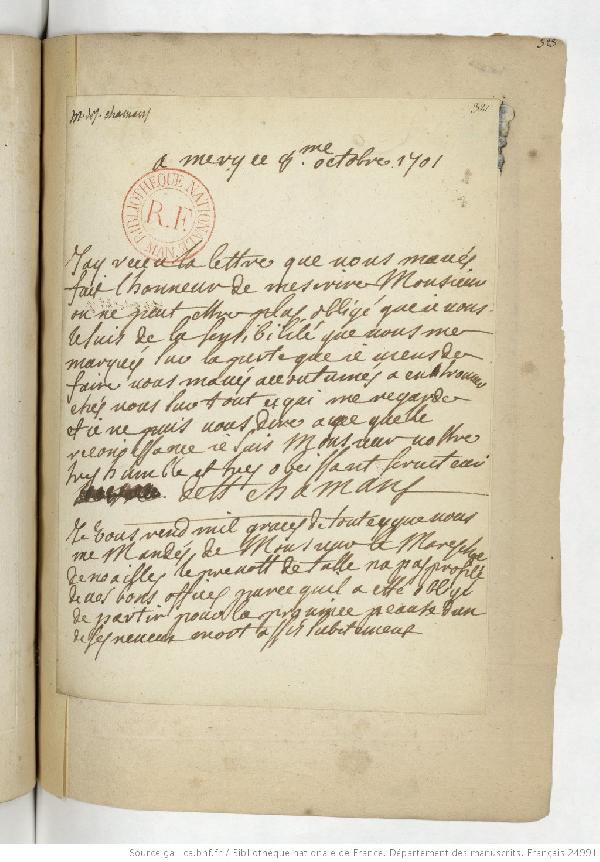 325
M. des chamans
321
a mery ce 8.me octobre 1701
BIBLIOTHEQUE NATIONALE MAN.
R.F.
Jay receu la lettre que vous maués
fait lhonneur de mescrire Monsieur
on ne peut estre plus obligé que ie vous
le suis de la sensibilité que vous me
marqués sur la perte que ie viens de
faire vous maués accoutumés a en trouuer
chés vous sur tout ce qui me regarde
et ie ne puis vous dire auec quelle
reconoissance ie suis Monsieur vostre
tres humble et tres obeissant seruiteur
des chamans
Je vous rend mil graces de tout ce que vous
me Mandés de Monsieur le Mareschal
de noailles le preuost de talle na pas profité
de ces bons offices parce quil a esté obligé
de partir pour la prouince a cause dun
de ses neueux mort assés subitement
Source gallica.bnf.fr / Bibliothèque nationale de France. Département des manuscrits. Français 24991